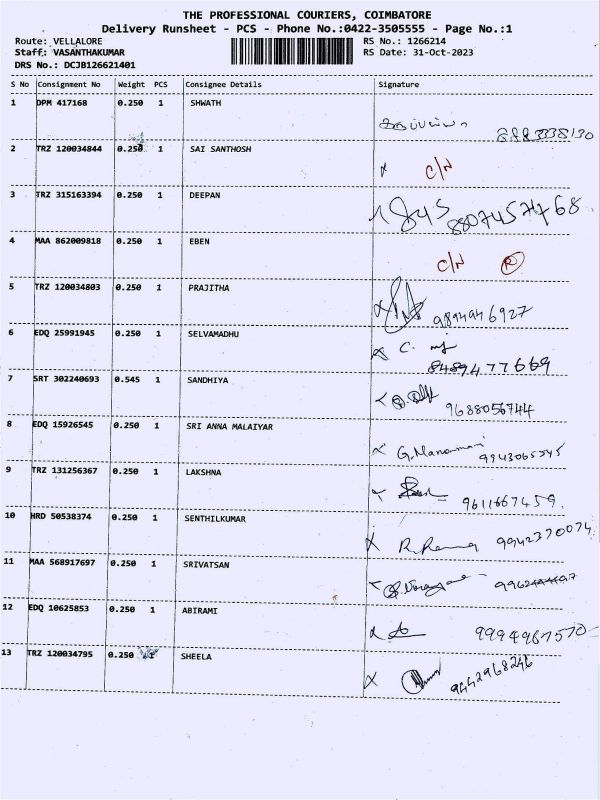 THE PROFESSIONAL COURIERS, COIMBATORE
Delivery Runsheet - PCS - Phone No.:0422-3505555 - Page No.:1
Route: VELLALORE RS No.: 1266214
Staff: VASANTHAKUMAR RS Date: 31-Oct-2023
DRS No.: DCJB126621401
S No Consignment No Weight PCS Consignee Details Signature
1 DPM 417168 0.250 1 SHWATH
2 TRZ 120034844 0.250 1 SAI SANTHOSH
C/N
3 TRZ 315163394 0.250 1 DEEPAN
4 MAA 862009818 0.250 1 EBEN
C/N R
5 TRZ 120034803 0.250 1 PRAJITHA
9894946927
6 EDQ 25991945 0.250 1 SELVAMADHU
8489477669
7 SRT 302240693 0.545 1 SANDHIYA
9688056744
8 EDQ 15926545 0.250 1 SRI ANNA MALAIYAR
9943065545
9 TRZ 131256367 0.250 1 LAKSHNA
9611667459
10 HRD 50538374 0.250 1 SENTHILKUMAR
9942370074
11 MAA 568917697 0.250 1 SRIVATSAN
12 EDQ 10625853 0.250 1 ABIRAMI
9994967570
13 TRZ 120034795 0.250 1 SHEELA
9442968246